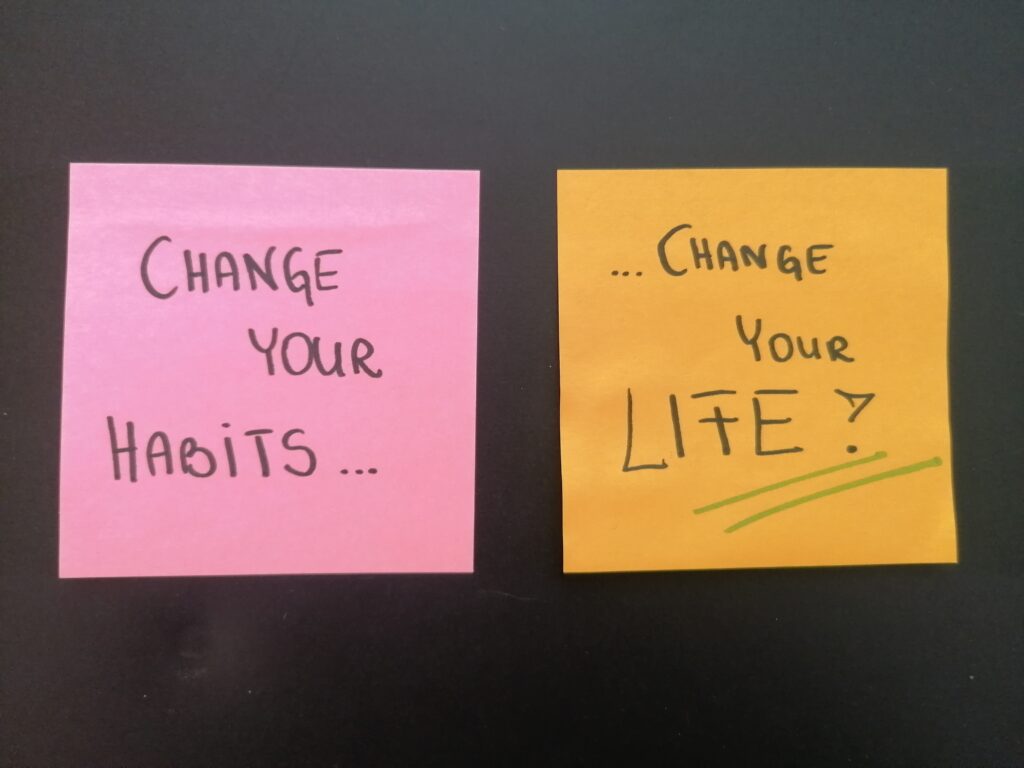 CHANGE
YOUR
HABiTS...
...CHANGE
YOUR
LIFE?